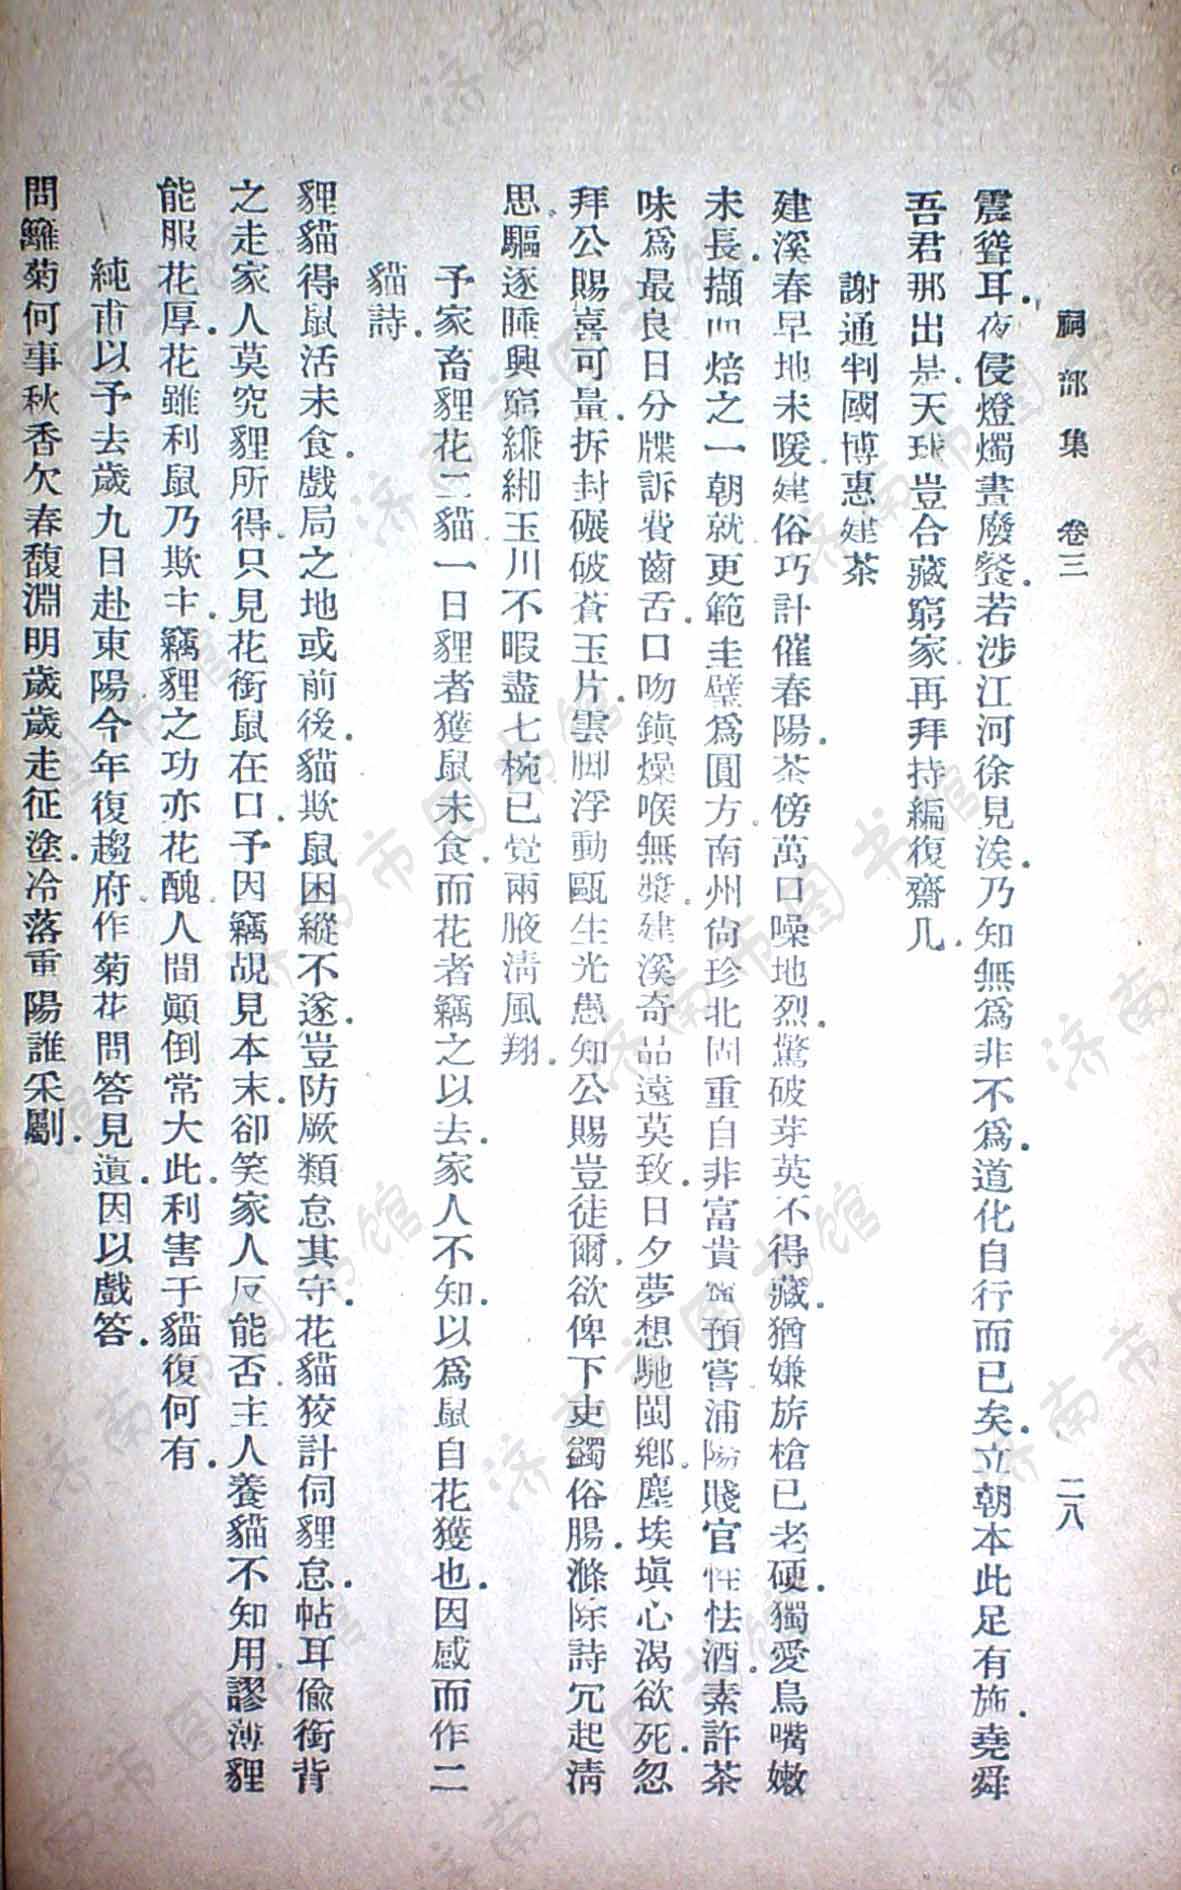 祠部集　卷三　二八
震聾耳.夜侵燈燭晝廢餐.若涉江河徐見涘.乃知無爲非不爲.道化自行而已矣.立朝本此足有施.堯舜
吾君那出是.天球豈合藏窮家.再拜持編復齋几.
謝通判國博惠建茶
建溪春早地未暖.建俗巧計催春陽.茶傍萬口噪地烈.驚破芽英不得藏.猶嫌旂槍已老硬.獨愛鳥嘴嫩
未長.擷山焙之一朝就.更範圭璧爲圓方.南州尙珍北固重.自非富貴 預嘗.浦陽賤官性怯酒.素許茶
味爲最良.日分牒訴費齒舌.口吻鎮燥喉無漿.建溪奇品遠莫致.日夕夢想馳閩鄉.塵埃塡心渴欲死.忽
拜公賜喜可量.拆封碾破蒼玉片.雲脚浮動甌生光.患知公賜豈徒爾.欲俾下吏蠲俗腸.滌除詩冗起淸
思.驅逐睡興窮縑緗.玉川不暇盡七椀.已覺兩腋淸風翔.
予家畜貍花二貓.一日貍者獲鼠未食.而花者竊之以去.家人不知.以爲鼠自花獲也.因感而作二
貓詩.
貍貓得鼠活未食.戲局之地或前後.貓欺鼠困縱不遂.豈防厥類怠其守.花貓狡計伺貍怠.帖耳偷銜背
之走.家人莫究貍所得.只見花銜鼠在口.予因竊覘見本末.卻笑家人反能否.主人養貓不知用.謬薄貍
能服花厚.花雖利鼠乃欺主.竊貍之功亦花醜.人間顚倒常大此.利害于貓復何有.
純甫以予去歲九日赴東陽.今年復趨府.作菊花問答見遺.因以戲答.
問籬菊.何事秋香欠春馥.淵明歲歲走征塗.冷落重陽誰采斸.